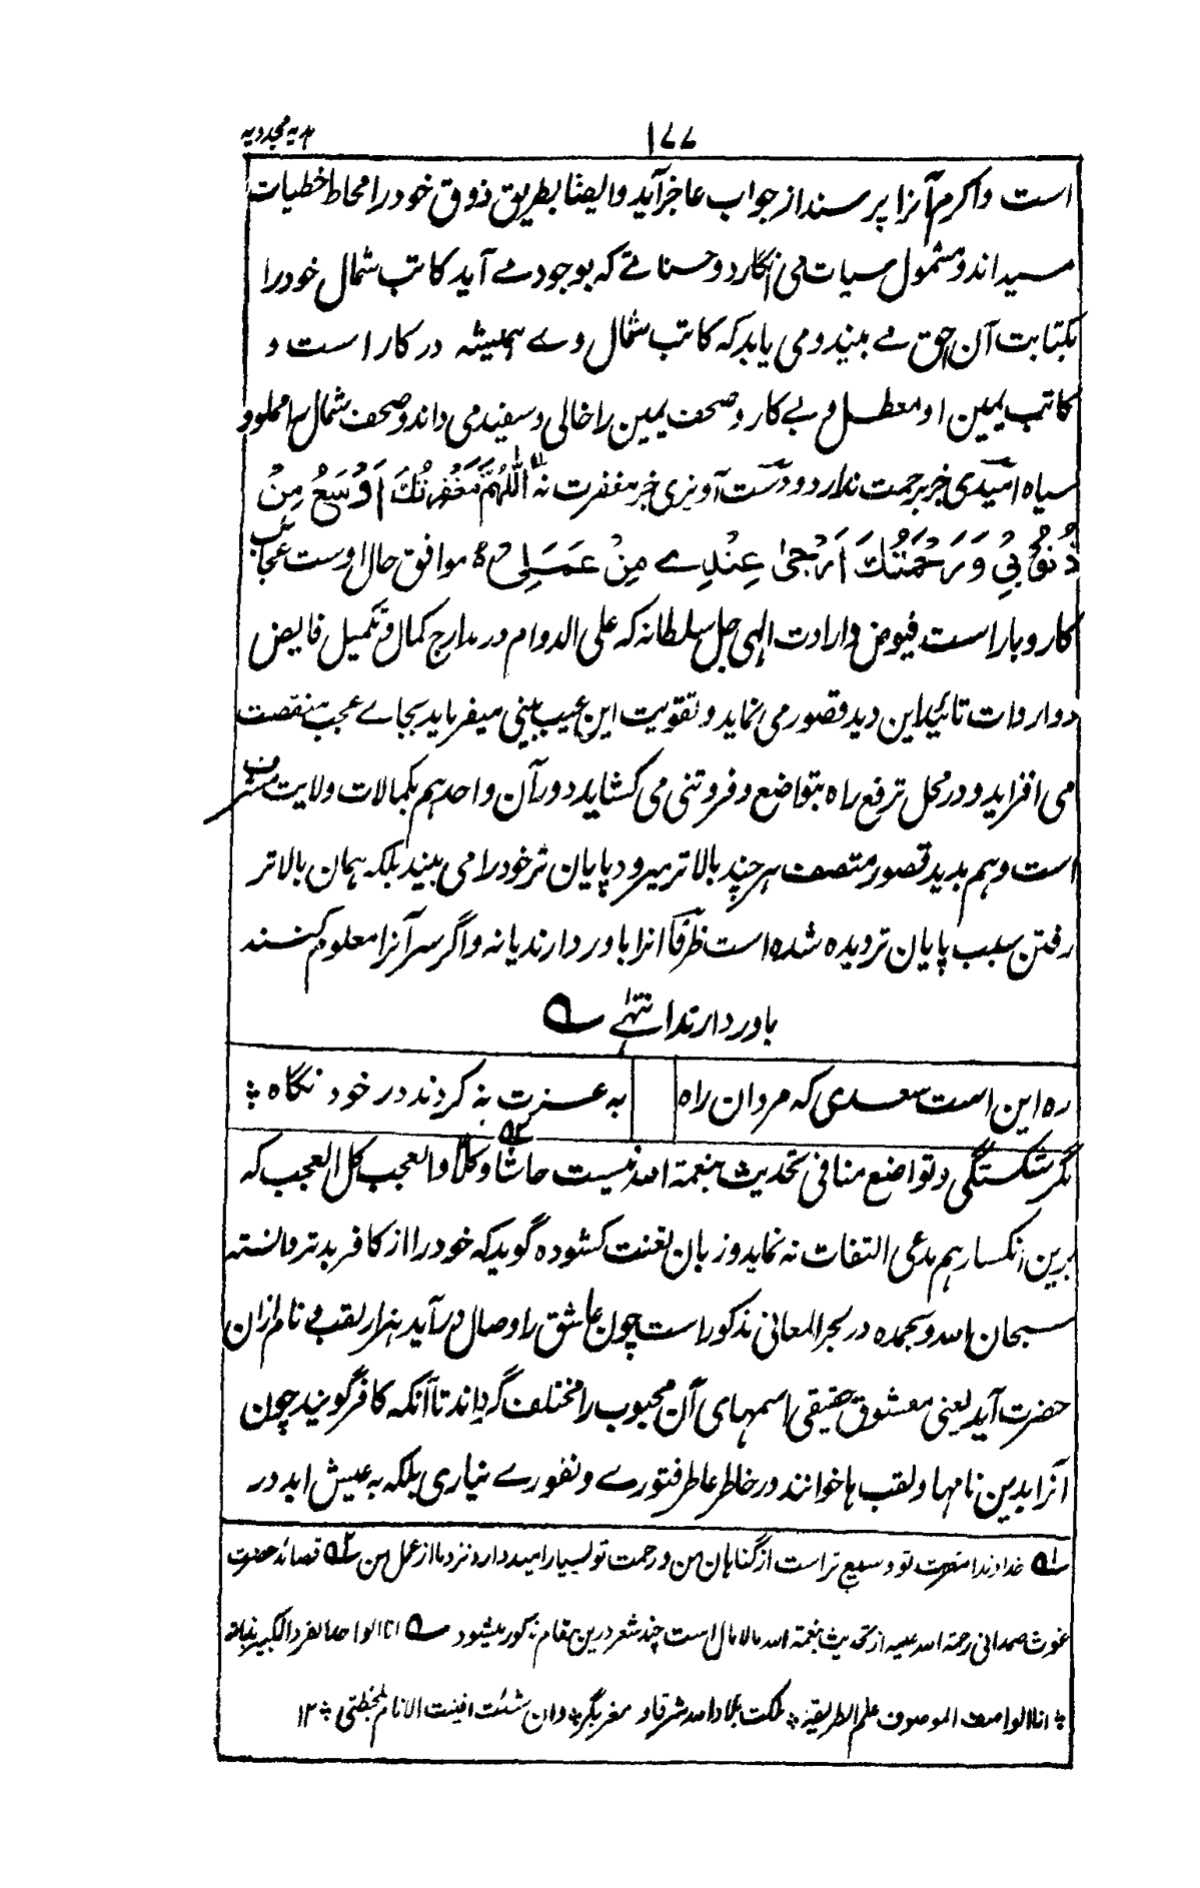 ہدیہ مجددیہ
۱۷۷
است و اگر مرآنرا پرسند از جواب عاجز آید و ایضًا بطریق ذوق خود را محاط خطیات
میداند و مشمول سیات می انگارد و حسناتے که بوجود مے آید کاتب شمال خود را
بکتابت آن احق مے بیند و می یابد که کاتب شمال وے ہمیشه در کار است و
کاتب یمین او معطل و بے کار و صحف یمین را خالی و سفید می داند و صحف شمال را مملو و
سیاه امیدی جز برحمت ندارد و دست آویزی جز مغفرت نه اَللّٰہُمَّ مَغْفِرَتُكَ اَوْسَعُ مِنْ
ذُنُوْبِیْ وَرَحْمَتُكَ اَرْجیٰ عِنْدِے مِنْ عَمَلِیْ موافق حال اوست عجائب
کاروبار است فیوض واردات الہی جل سلطانه که علی الدوام در مدارج کمال و تکمیل فایض
و واردات تائید این دید قصور می نماید و تقویت این عیب بینی میفرماید بجاے عجب منقصت
می افزاید و در محل ترفع راه بتواضع و فروتنی می کشاید در آن واحد ہم بکمالات ولایت مشرف
است و ہم بدید قصور متصف ہر چند بالاتر میرود پایان تر خود را می بیند بلکه ہمان بالاتر
رفتن سبب پایان تر دیده شده است ظرفا آنرا باور دارند یا نه و اگر سر آنرا معلوم کنند
باور دارند انتہے ؎
ره این است سعدی که مردان راه به عزت نه کردند در خود نگاه ؞
مگر شکستگی و تواضع منافی تحدیث بنعمة الله نیست حاشا و کلّا والعجب کل العجب که
برین انکسار ہم مدعی التفات نه نماید و زبان لعنت کشوده گوید که خود را از کافر بدتر دانسته
سبحان الله و بحمده در بحر المعانی مذکور است چون عاشق را وصال در آید ہزار لقب و نام ازان
حضرت آید یعنی معشوق حقیقی اسمہای آن محبوب را مختلف گرداند تا آنکه کافر گویند چون
آنرا بدین نامہا و لقب ہا خوانند در خاطر عاطر فتورے و نفورے نیاری بلکه به عیش ابد در
؎۱ خداوندا مغفرت تو وسیع تر است از گناہان من و رحمت تو بسیار امیددارد نزد ما از عمل من ؎۲ قصائد حضرت
غوث صمدانی رحمة الله علیه از تحدیث بنعمة الله مالامال است چند شعر درین مقام مذکور میشود ؎ انا الواحد الفرد الکبیر بذاته
؞ انا الواصف الموصوف علم الطریقة ؞ ملکت بلاد الله شرقا و مغربا ؞ وان شئت افنیت الانام بلحظتی ؞ ۱۲